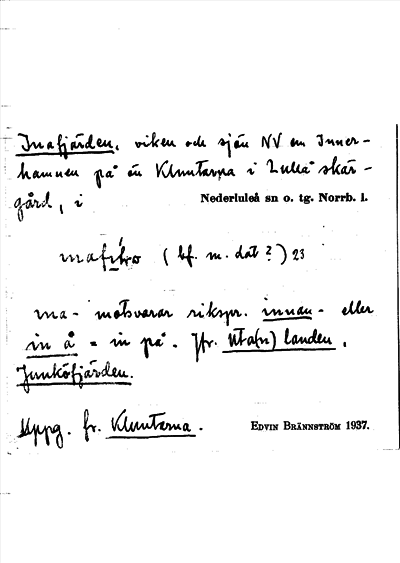 Inafjärden, viken och sjön NV om Inner-
hamnen på ön Kluntarna i Luleå skär-
gård, i Nederluleå sn o. tg. Norrb. l.
(bf. m. dat?) 23
ına- motsvarar rikspr. innan- eller
in å = in på. Jfr. Uta(n) landen,
Junköfjärden.
Uppg. fr. Kluntarna.
EDVIN BRÄNNSTRÖM 1937.